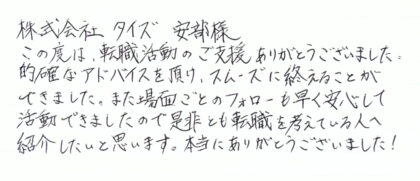 株式会社 タイズ 安部様
この度は、転職活動のご支援ありがとうございました。
的確なアドバイスを頂り、スムーズに終えることが
できました。また場面ごとのフォローも早く安心して
活動できましたので是非とも転職を考えている人へ
紹介したいと思います。本当にありがとうございました!